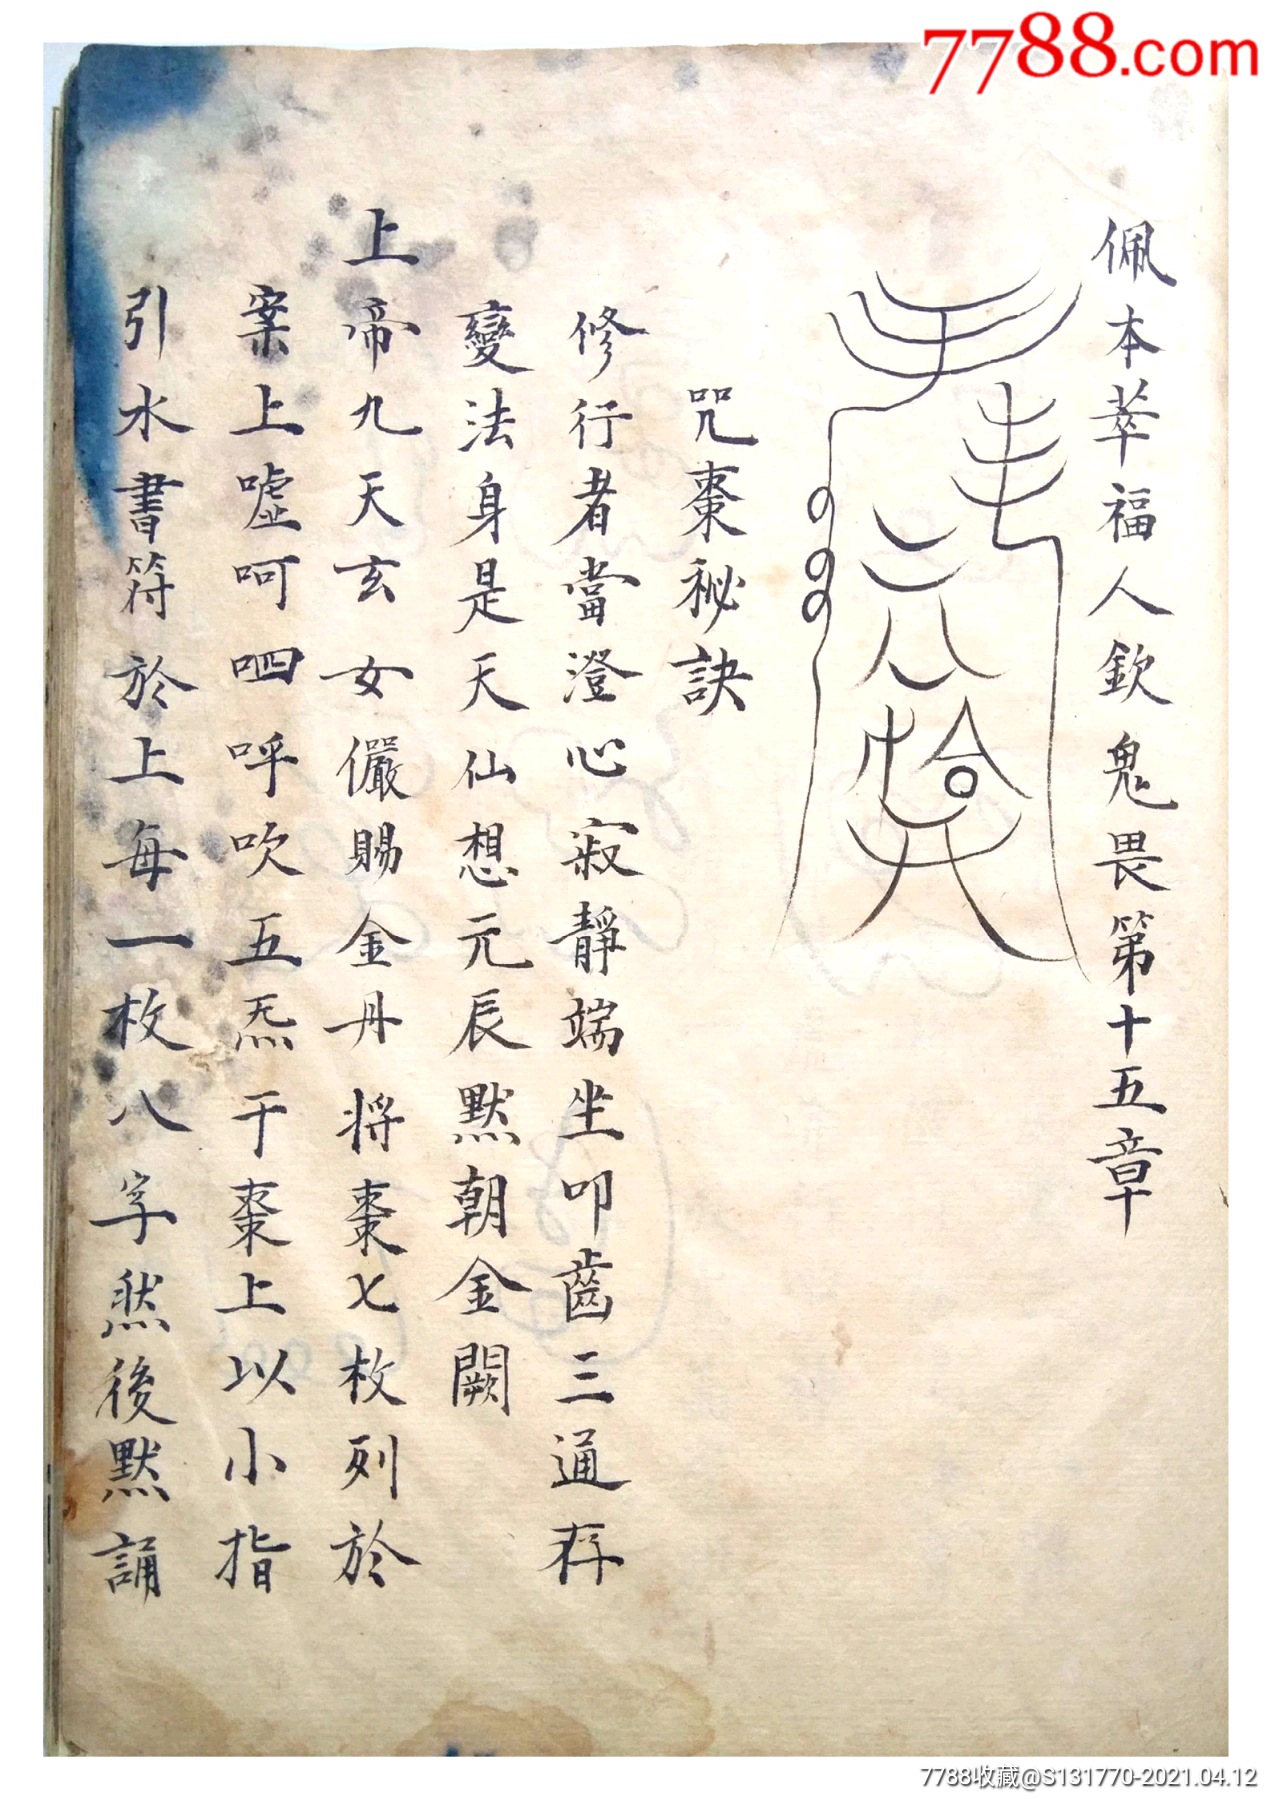 7788.com
佩本萃福人欽鬼畏第十五章
咒棗秘訣
修行者當澄心寂靜端坐叩齒三通存
變法身是天仙想元辰默朝金闕
上帝九天玄女儼賜金丹將棗七枚列於
案上噓呵呬呼吹五炁于棗上以小指
引水書符於上每一枚八字然後默誦
7788收藏@S131770-2021.04.12